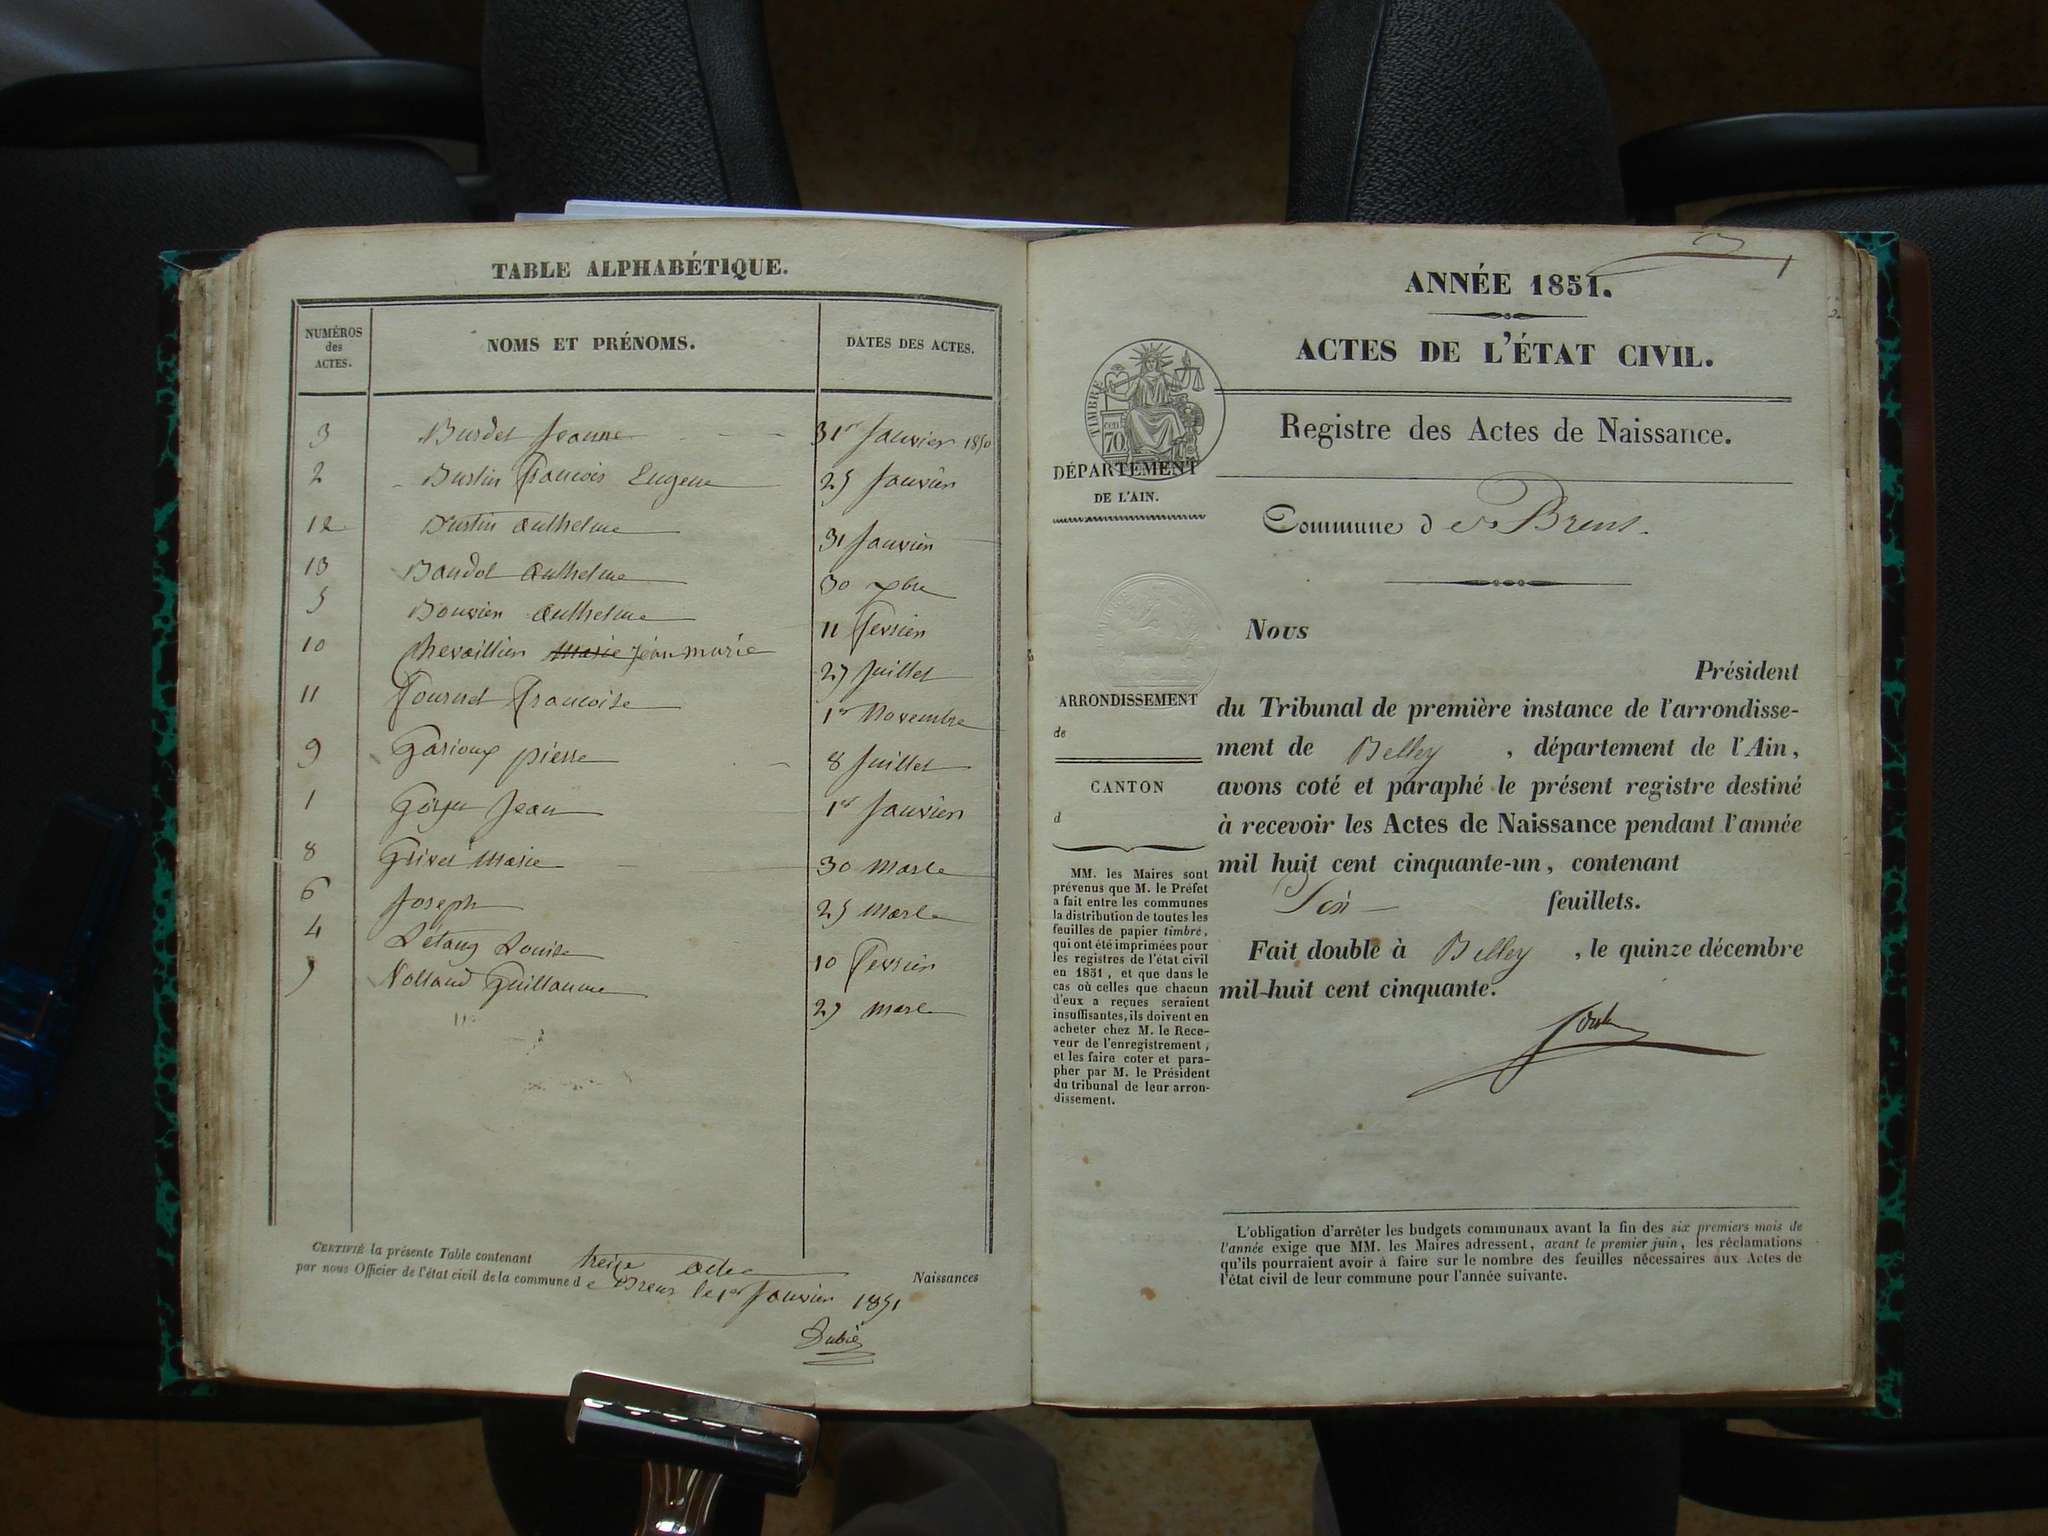 TABLE ALPHABÉTIQUE.
NUMÉROS des ACTES. NOMS ET PRÉNOMS. DATES DES ACTES.
3 Burdet Jeanne 31 Janvier 1850
2 Bustin François Eugene 25 Janvier
12 Bustin Anthelme 31 Janvier
13 Baudot Anthelme 30 xbre
5 Bouvier Anthelme 11 Fevrier
10 Chevaillier Marie Jean marie 27 Juillet
11 Francoise 1er Novembre
9 pierre 8 Juillet
1 Jean 1er Janvier
8 Grivet Marie 30 Mars
6 Joseph 25 Mars
4 Létang Louise 10 Fevrier
7 Volland Guillaume 27 Mars
CERTIFIÉ la présente Table contenant treize actes Naissances
par nous Officier de l'état civil de la commune de Brens le 1er Janvier 1851
ANNÉE 1851.
ACTES DE L'ÉTAT CIVIL.
TIMBRE
70
Registre des Actes de Naissance.
DÉPARTEMENT
DE L'AIN.
Commune de Brens.
ARRONDISSEMENT
de
CANTON
d
MM. les Maires sont
prévenus que M. le Préfet
a fait entre les communes
la distribution de toutes les
feuilles de papier timbré,
qui ont été imprimées pour
les registres de l'état civil
en 1851, et que dans le
cas où celles que chacun
d'eux a reçues seraient
insuffisantes, ils doivent en
acheter chez M. le Rece-
veur de l'enregistrement,
et les faire coter et para-
pher par M. le Président
du tribunal de leur arron-
dissement.
Nous
Président
du Tribunal de première instance de l'arrondisse-
ment de Belley, département de l'Ain,
avons coté et paraphé le présent registre destiné
à recevoir les Actes de Naissance pendant l'année
mil huit cent cinquante-un, contenant
feuillets.
Fait double à Belley, le quinze décembre
mil-huit cent cinquante.
L'obligation d'arrêter les budgets communaux avant la fin des six premiers mois de
l'année exige que MM. les Maires adressent, avant le premier juin, les réclamations
qu'ils pourraient avoir à faire sur le nombre des feuilles nécessaires aux Actes de
l'état civil de leur commune pour l'année suivante.